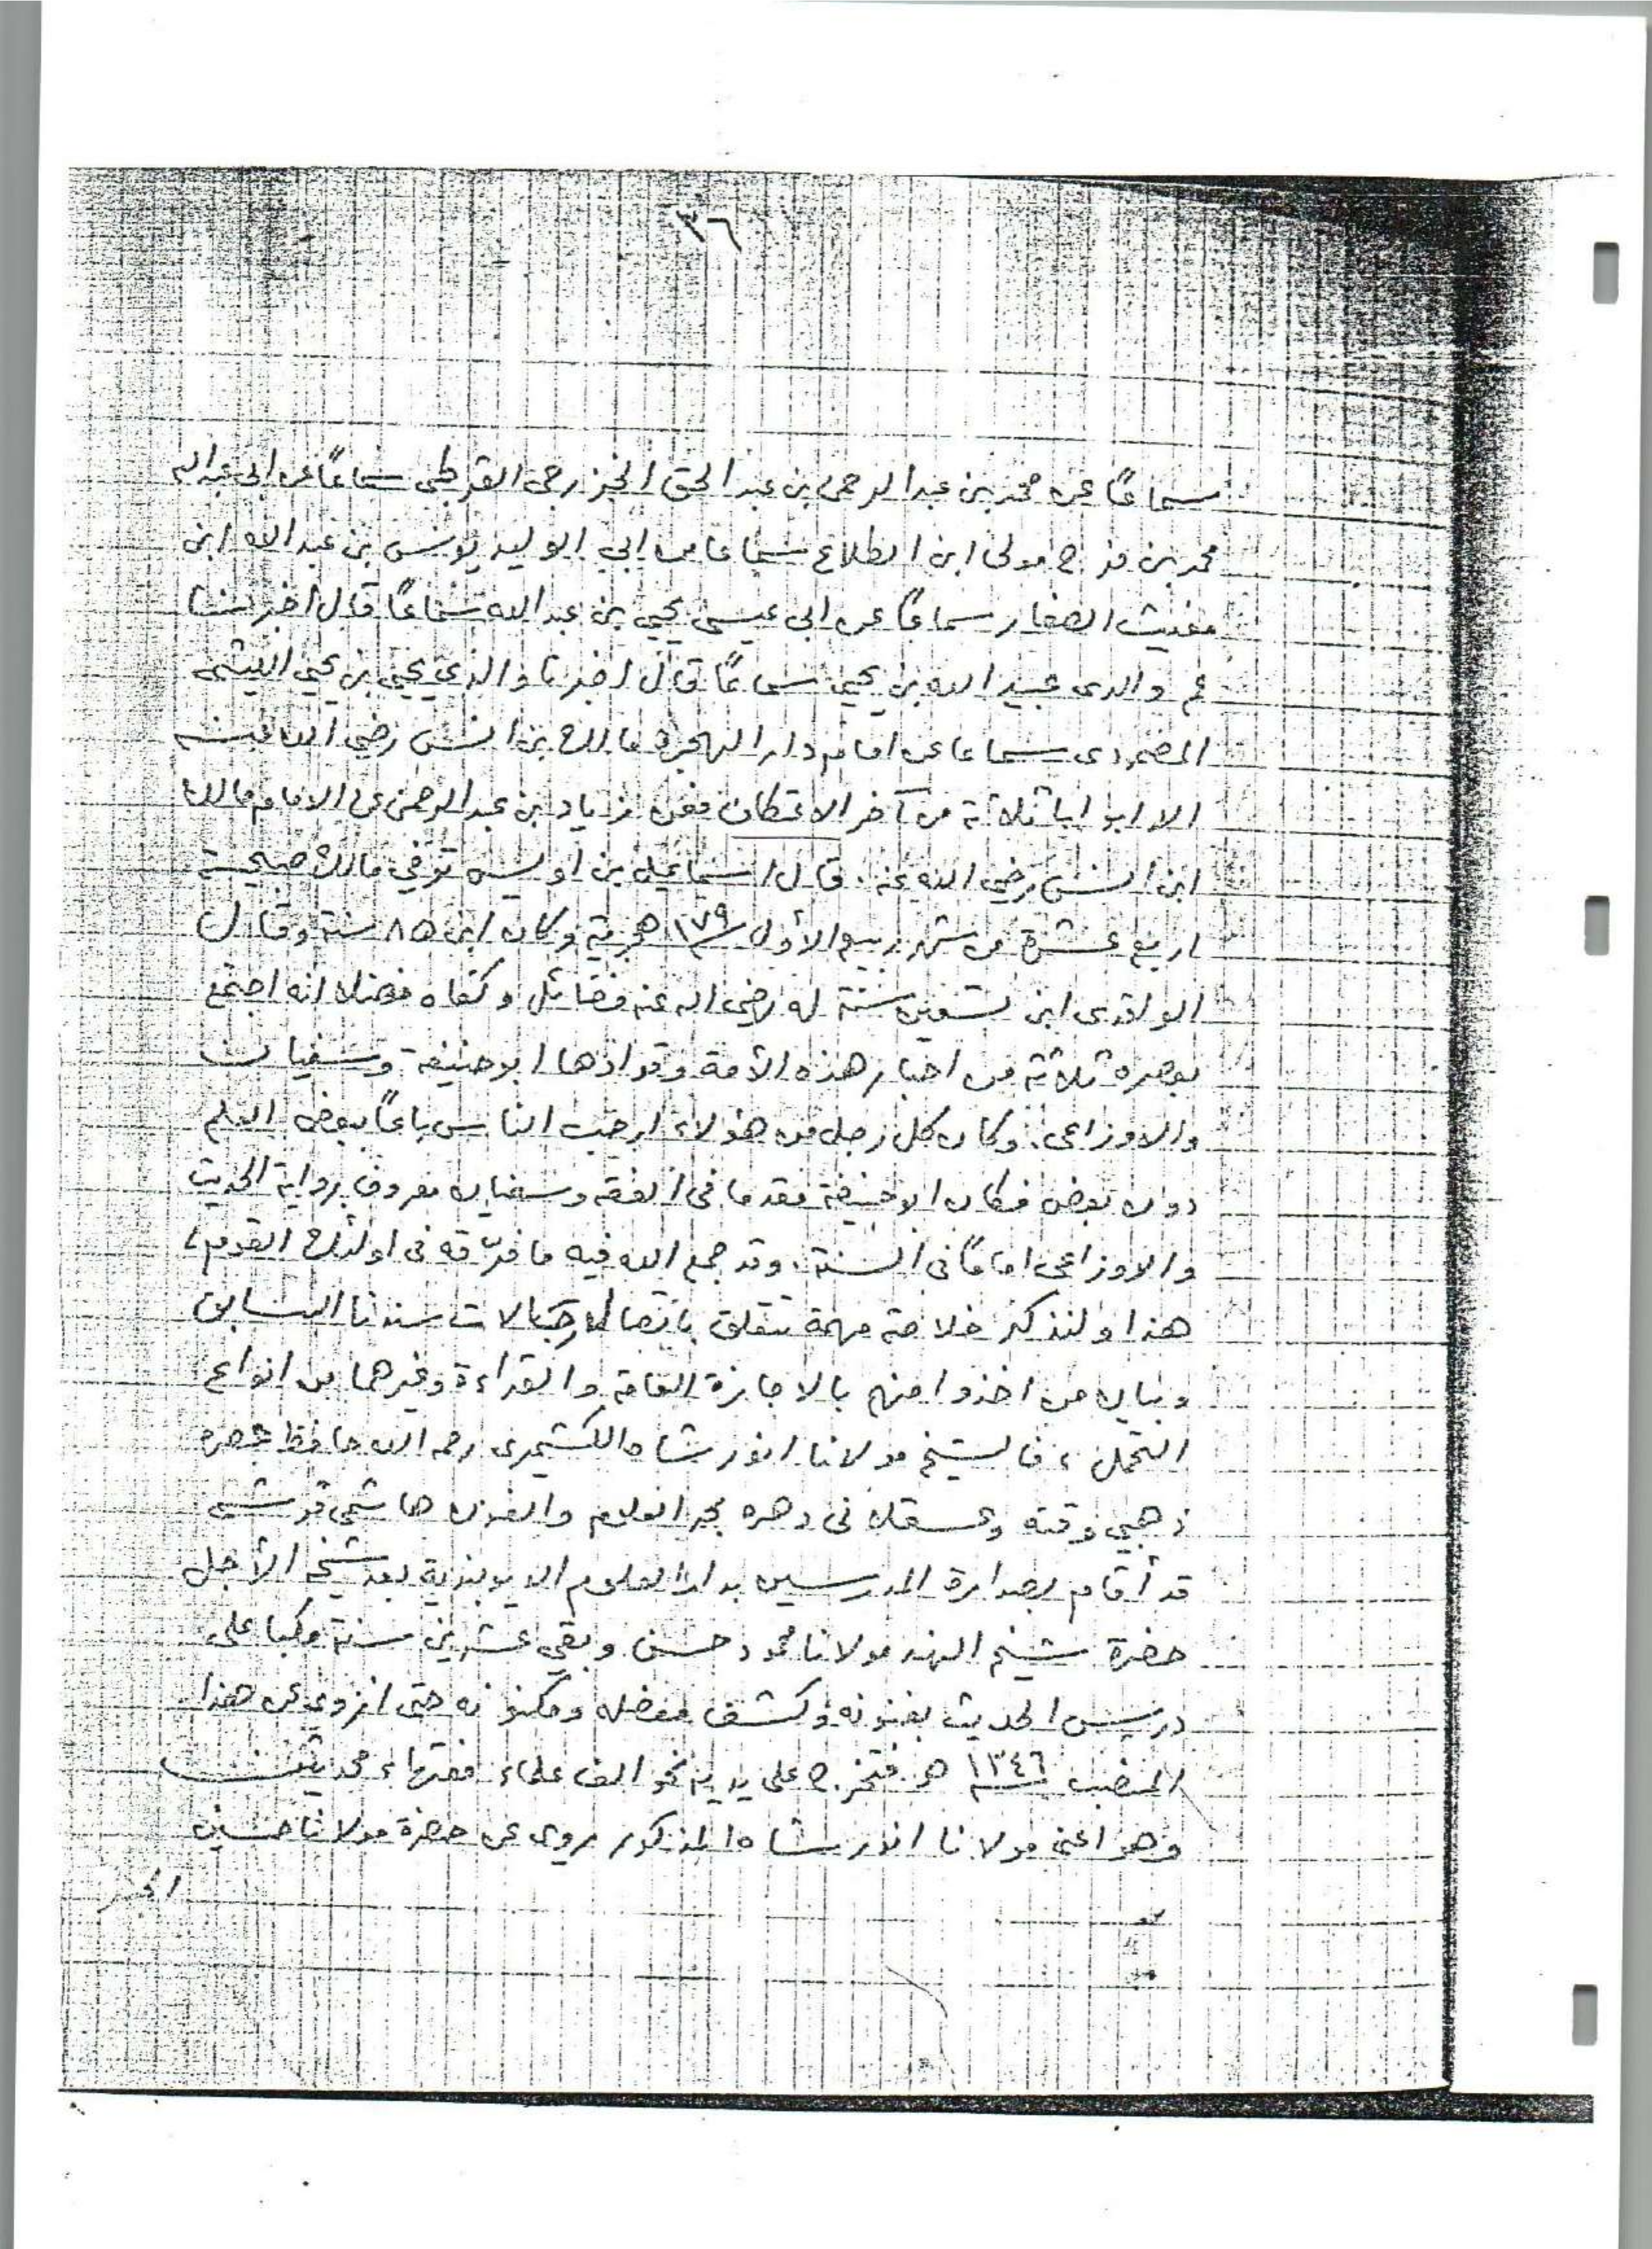 ٣٦
سماعًا عن محمد بن عبد الرحمن بن عبد الحق الخزرجى القرطبى سماعًا عن ابى عبد الله
محمد بن فرج مولى ابن الطلاع سماعا من ابي الوليد يونس بن عبد الله ابن
مغيث الصفار سماعًا عن ابى عيسى يحيى بن عبد الله سماعًا قال أخبرنا
عم والدى عبيد الله بن يحيى سماعًا قال اخبرنا والدي يحيى بن يحيى الليثى
المصمودى سماعا عن امام دار الهجرة مالك بن انس رضي الله عنه
الا ابوابا ثلاثة من آخر الاعتكاف فعن زياد بن عبد الرحمن عن الامام مالك
ابن انس رضي الله عنه . قال اسماعيل بن أويس توفي مالك صبيحة
اربع عشرة من شهر ربيع الأول ١٧٩ هجرية وكان ابن ٨٥ سنة وقال
الواقدى ابن تسعين سنة له رضى الله عنه فضائل وكفاه فضلا انه اجتمع
بعصره ثلاثة من احبار هذه الأمة وقوادها ابو حنيفة وسفيان
والاوزاعى . وكان كل رجل من هؤلاء ارحب الناس باعًا ببعض العلم
دون بعض فكان ابو حنيفة مقدما فى الفقه وسفيان معروف برواية الحديث
والاوزاعى امامًا فى السنة . وقد جمع الله فيه ما فرّقه فى اولئك القوم ،
هذا ولنذكر خلاصة مهمة تتعلق باتصال رجالات سندنا السابق
وبيان من اخذوا منهم بالاجازة العامة والقراءة وغيرهما من انواع
التحمل ، فالشيخ مولانا انور شاه الكشميرى رحمه الله حافظ عصره
ذهبي وقته وعسقلانى دهره بحر العلوم والفنون هاشمى قرشى
قد أقام بصدارة المدرسين بدار العلوم الديوبندية بعد شيخه الأجل
حضرة شيخ الهند مولانا محمود حسن وبقي عشرين سنة مكبا على
درس الحديث بفنونه وكشف معضله ومكنونه حتى انزوى عن هذا
المنصب ١٣٤٦ هـ فتخرج على يديه نحو الف علماء فقهاء محدثين
وهو اعنى مولانا انور شاه المذكور يروى عن حضرة مولانا حسين